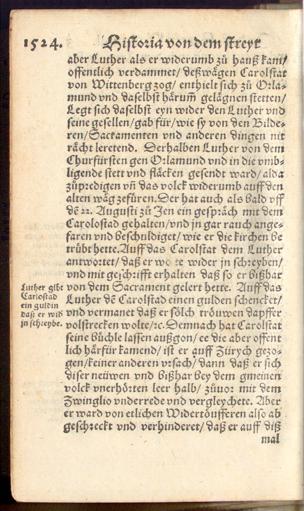 1524. Historia von dem streyt
aber Luther als er widerumb zů hauß kam/
offentlich verdammet/ deßwägen Carolstat
von Wittenberg zog/ enthielt sich zů Orla-
mund vnd daselbst härum̃ gelägnen stetten/
Legt sich daselbst eyn wider den Luther vnd
seine gesellen/ gab für/ wie sy von den Bilde-
ren/ Sacramenten vnd anderen dingen nit
rächt leretend. Derhalben Luther von dem
Churfürsten gen Orlamund vnd in die vmb-
ligende stett vnd fläcken gesendt ward/ alda
zů predigen vñ das volck widerumb auff den
alten wäg zefüren. Der hat auch als bald vff
dẽ 22. Augusti zů Jen ein gespräch mit dem
Carolostad gehalten/ vnd in gar rauch ange-
faren vnd beschuldiget/ wie er die kirchen be
trübt hette. Auff das Carolstat dem Luther
antwortet/ daß er wider jn schreyben/
vnd mit geschrifft erhalten daß so er bißhar
von dem Sacrament gelert hette. Auff das
Luther dẽ Carolstad einen gulden schencket/
vnd vermanet daß er sölch tröuwen dapffer
volstrecken wolte/ ꝛc. Demnach hat Carolstat
seine büchle lassen außgon/ ee die aber offent
lich härfür kamend/ ist er auff Zürych gezo-
gen/ keiner anderen vrsach/ dann daß er sich
diser neüwen vnd bißhar bey dem gmeinen
volck vnerhörten leer halb/ zůuor mit dem
Zwinglio vnderrede vnd vergleychete. Aber
er ward von etlichen Widertöufferen also ab
geschreckt vnd verhinderet/ daß er auff diß
mal
Luther gibt
Carlostad
ein guldin
daß er wid
jn schreybe.